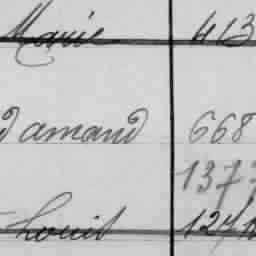 Marie 413
d amand 668
137
Louis 127